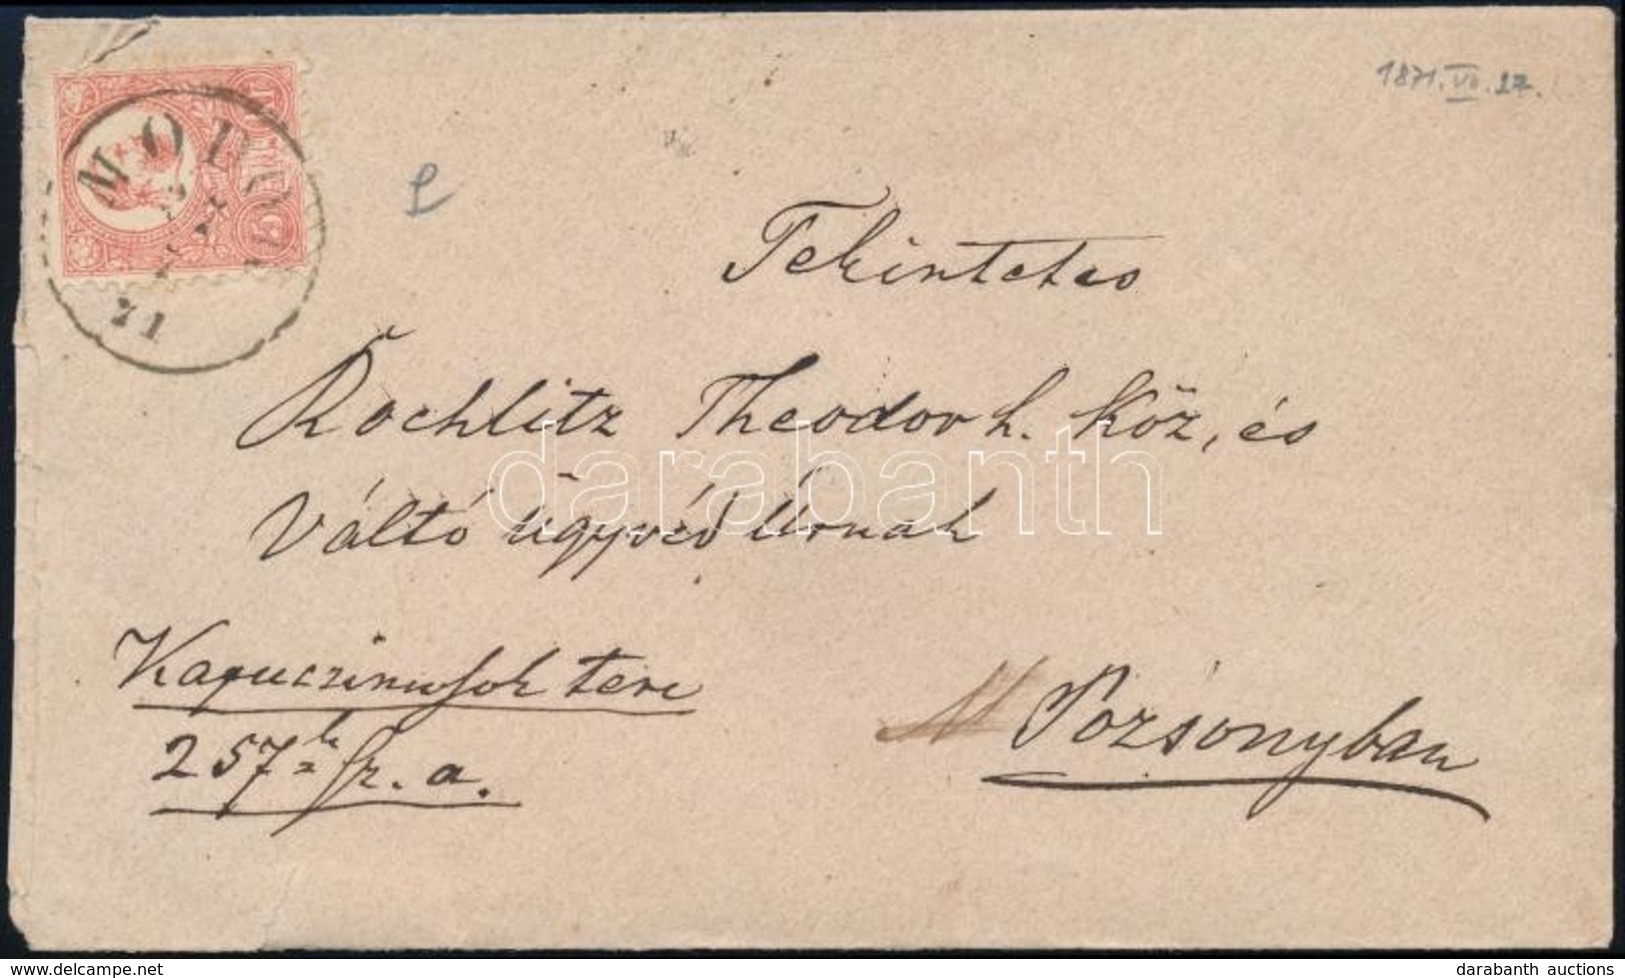 1871. VII. 27.
MODOR
71
Tekintetes
Rochlitz Theodor h. köz, és
Váltó ügyvéd Úrnak
Kapuczinusok tere
257 sz. a.
Pozsonyban
darabanth
www.delcampe.net
darabanth auctions